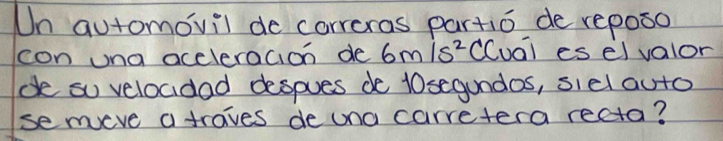 Un automóvil de carreras partió de reposo
con una aceleración de 6m/s² ¿Cuál es el valor
de su velocidad despues de 10segundos, si el auto
se mueve a tráves de una carretera recta?